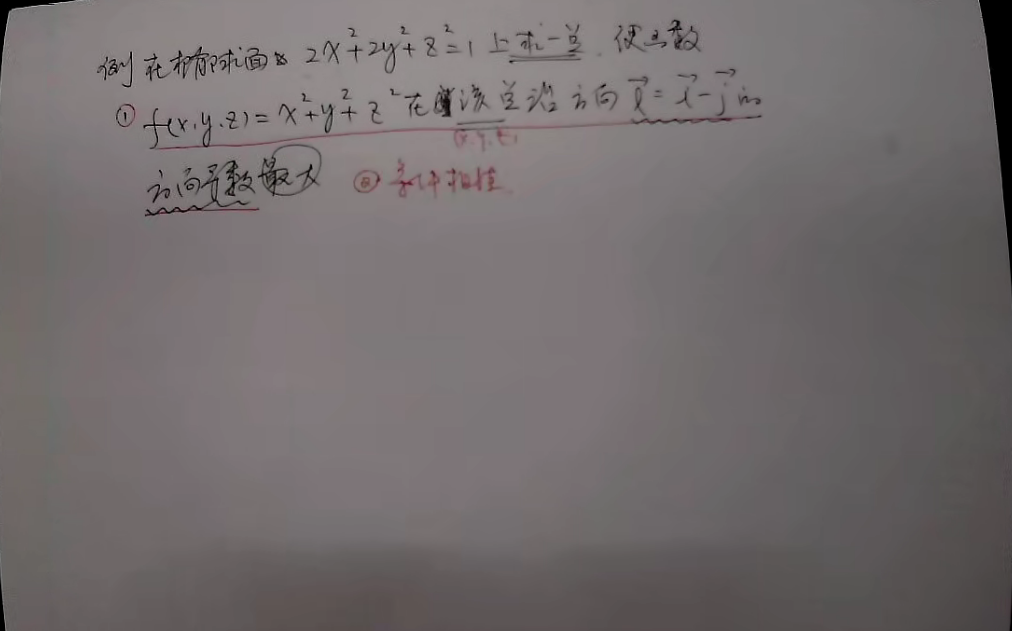 例 在椭球面 2x²+2y²+z²=1 上求一点, 使函数
① f(x,y,z)=x²+y²+z² 在该点沿方向 l⃗=i⃗-j⃗ 的
(x,y,z)
方向导数最大 ② 条件极值